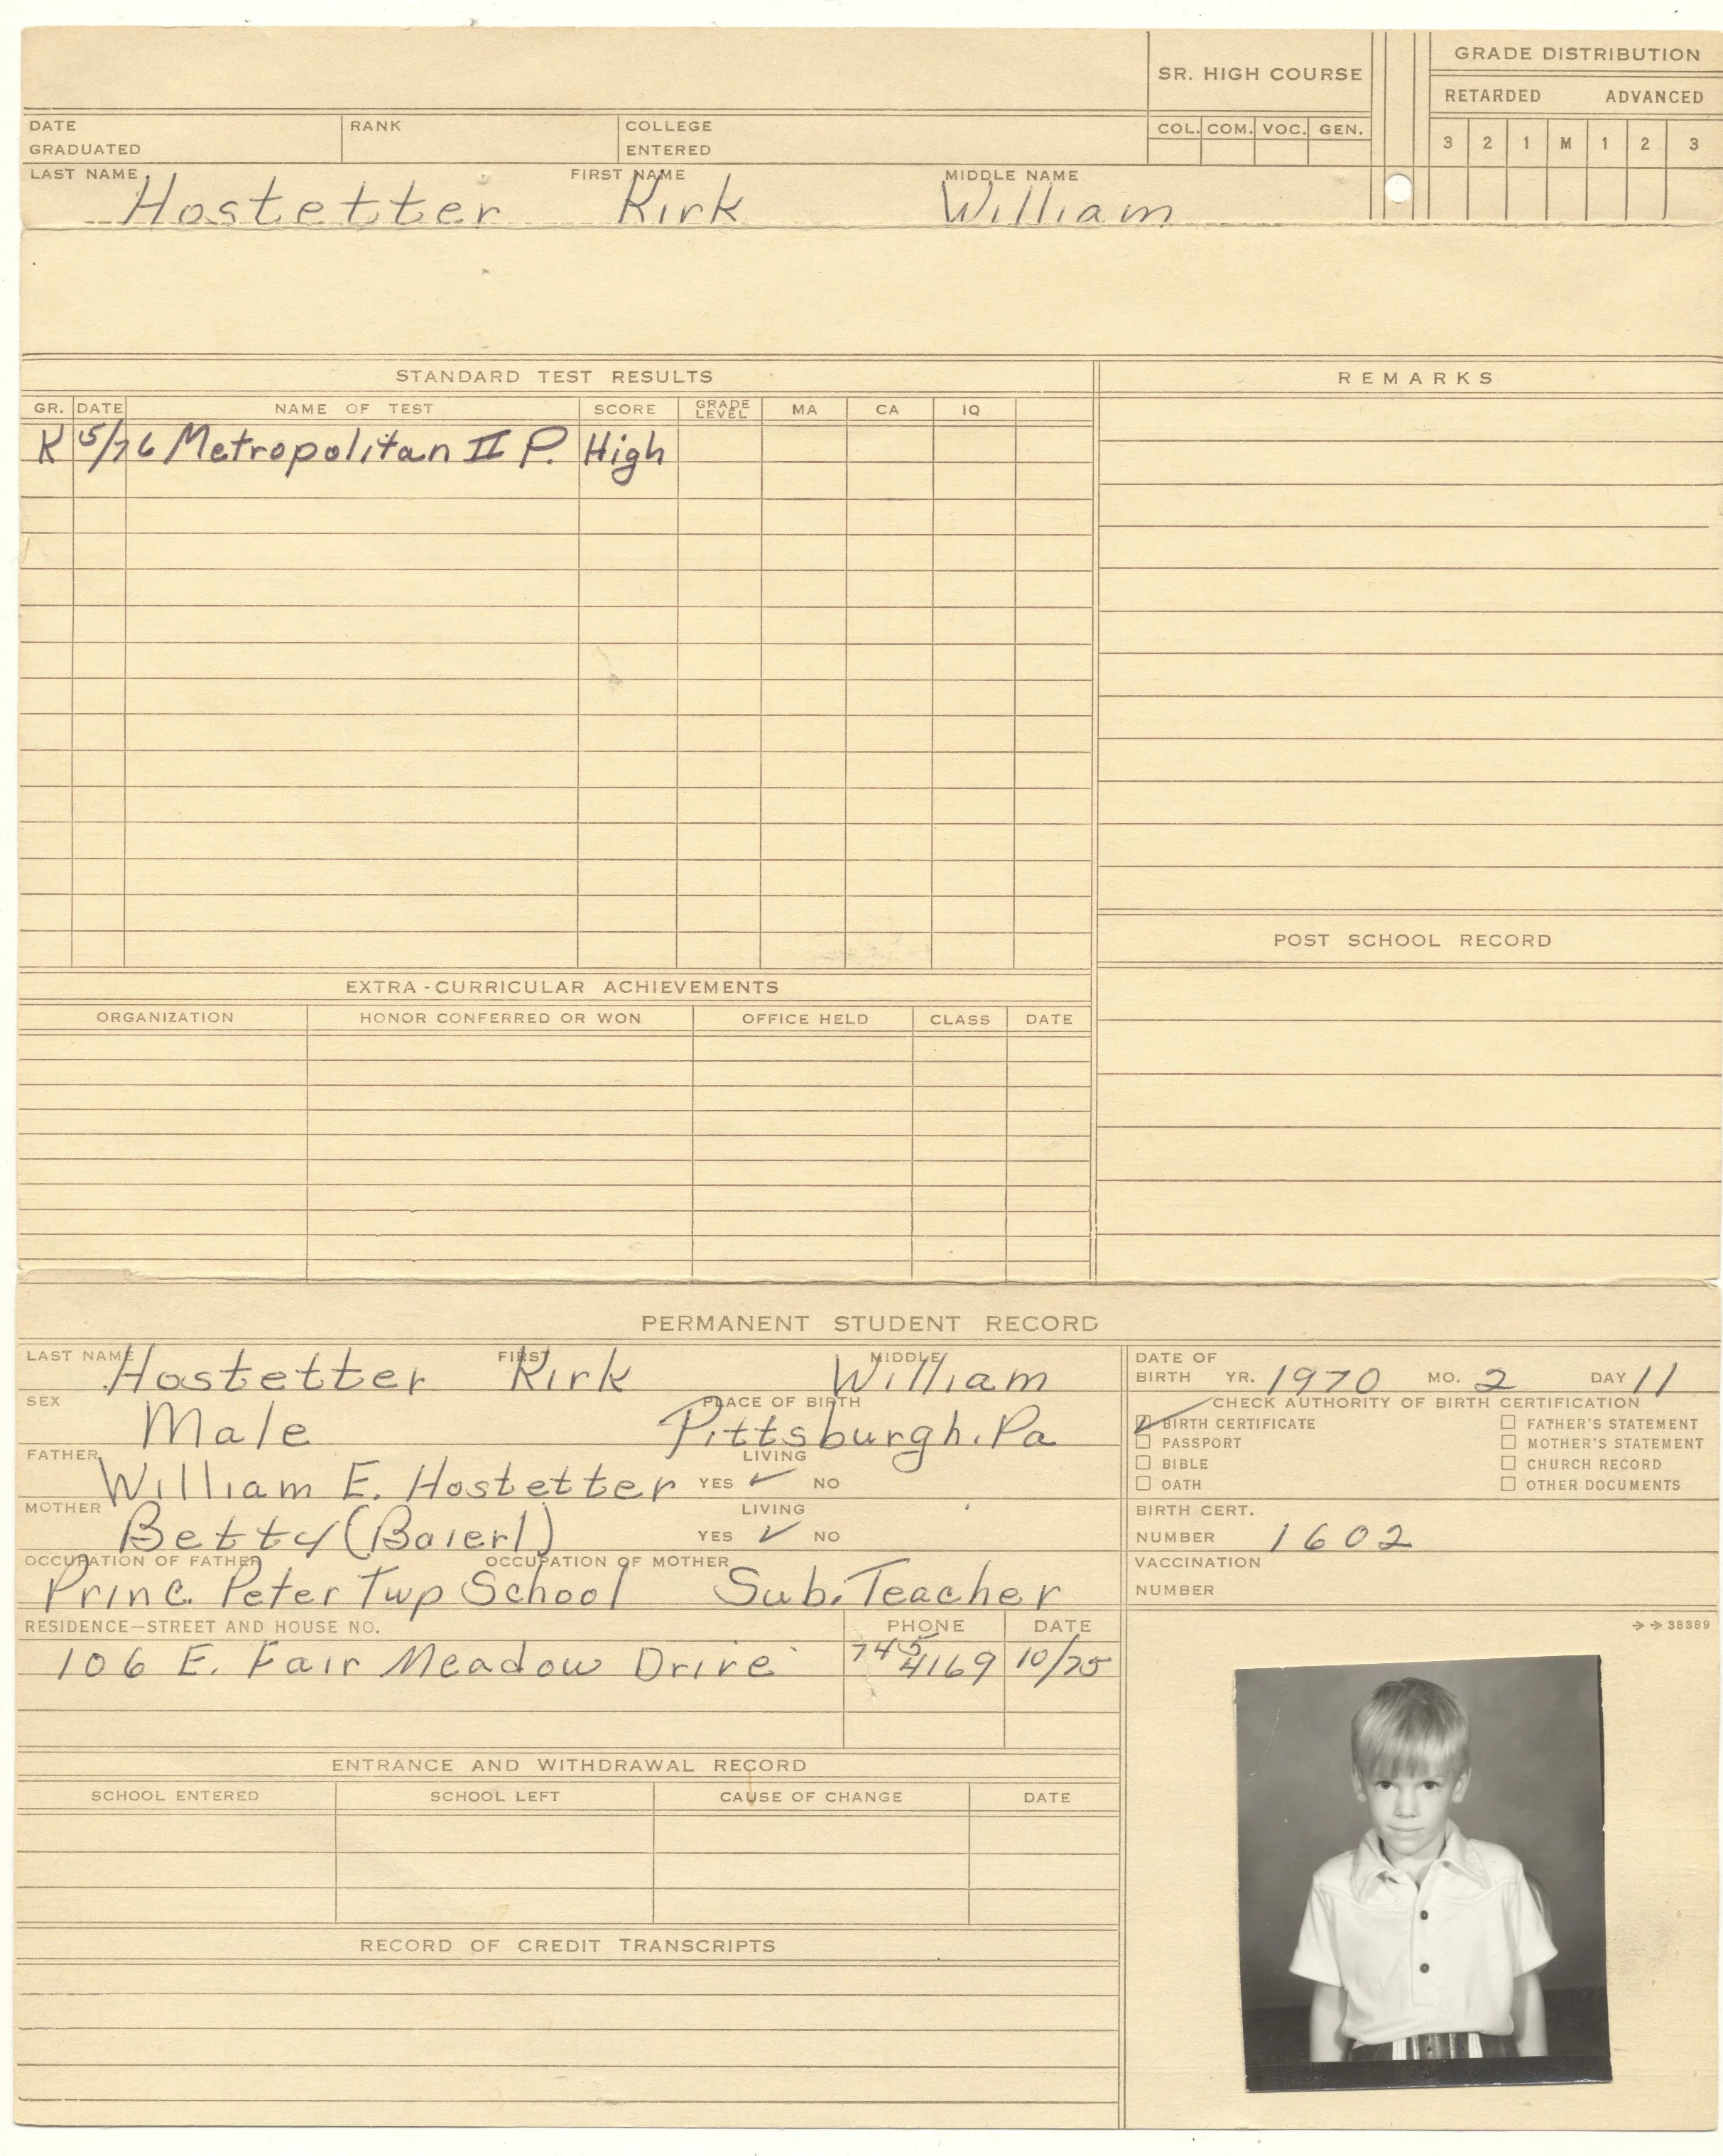 SR. HIGH COURSE
GRADE DISTRIBUTION
RETARDED ADVANCED
DATE GRADUATED RANK COLLEGE ENTERED COL. COM. VOC. GEN. 3 2 1 M 1 2 3
LAST NAME FIRST NAME MIDDLE NAME
Hostetter Kirk William
STANDARD TEST RESULTS
REMARKS
GR. DATE NAME OF TEST SCORE GRADE LEVEL MA CA IQ
K 5/76 Metropolitan II P. High
POST SCHOOL RECORD
EXTRA-CURRICULAR ACHIEVEMENTS
ORGANIZATION HONOR CONFERRED OR WON OFFICE HELD CLASS DATE
PERMANENT STUDENT RECORD
LAST NAME FIRST MIDDLE
Hostetter Kirk William
DATE OF BIRTH YR. 1970 MO. 2 DAY 11
SEX PLACE OF BIRTH
Male Pittsburgh, Pa
CHECK AUTHORITY OF BIRTH CERTIFICATION
BIRTH CERTIFICATE FATHER'S STATEMENT
PASSPORT MOTHER'S STATEMENT
BIBLE CHURCH RECORD
OATH OTHER DOCUMENTS
FATHER LIVING
William E. Hostetter YES ✓ NO
MOTHER LIVING
Betty (Baierl) YES ✓ NO
BIRTH CERT.
NUMBER 1602
OCCUPATION OF FATHER OCCUPATION OF MOTHER
Princ. Peter Twp School Sub. Teacher
VACCINATION
NUMBER
RESIDENCE—STREET AND HOUSE NO. PHONE DATE
106 E. Fair Meadow Drive 745 4169 10/75
→→ 38389
ENTRANCE AND WITHDRAWAL RECORD
SCHOOL ENTERED SCHOOL LEFT CAUSE OF CHANGE DATE
RECORD OF CREDIT TRANSCRIPTS